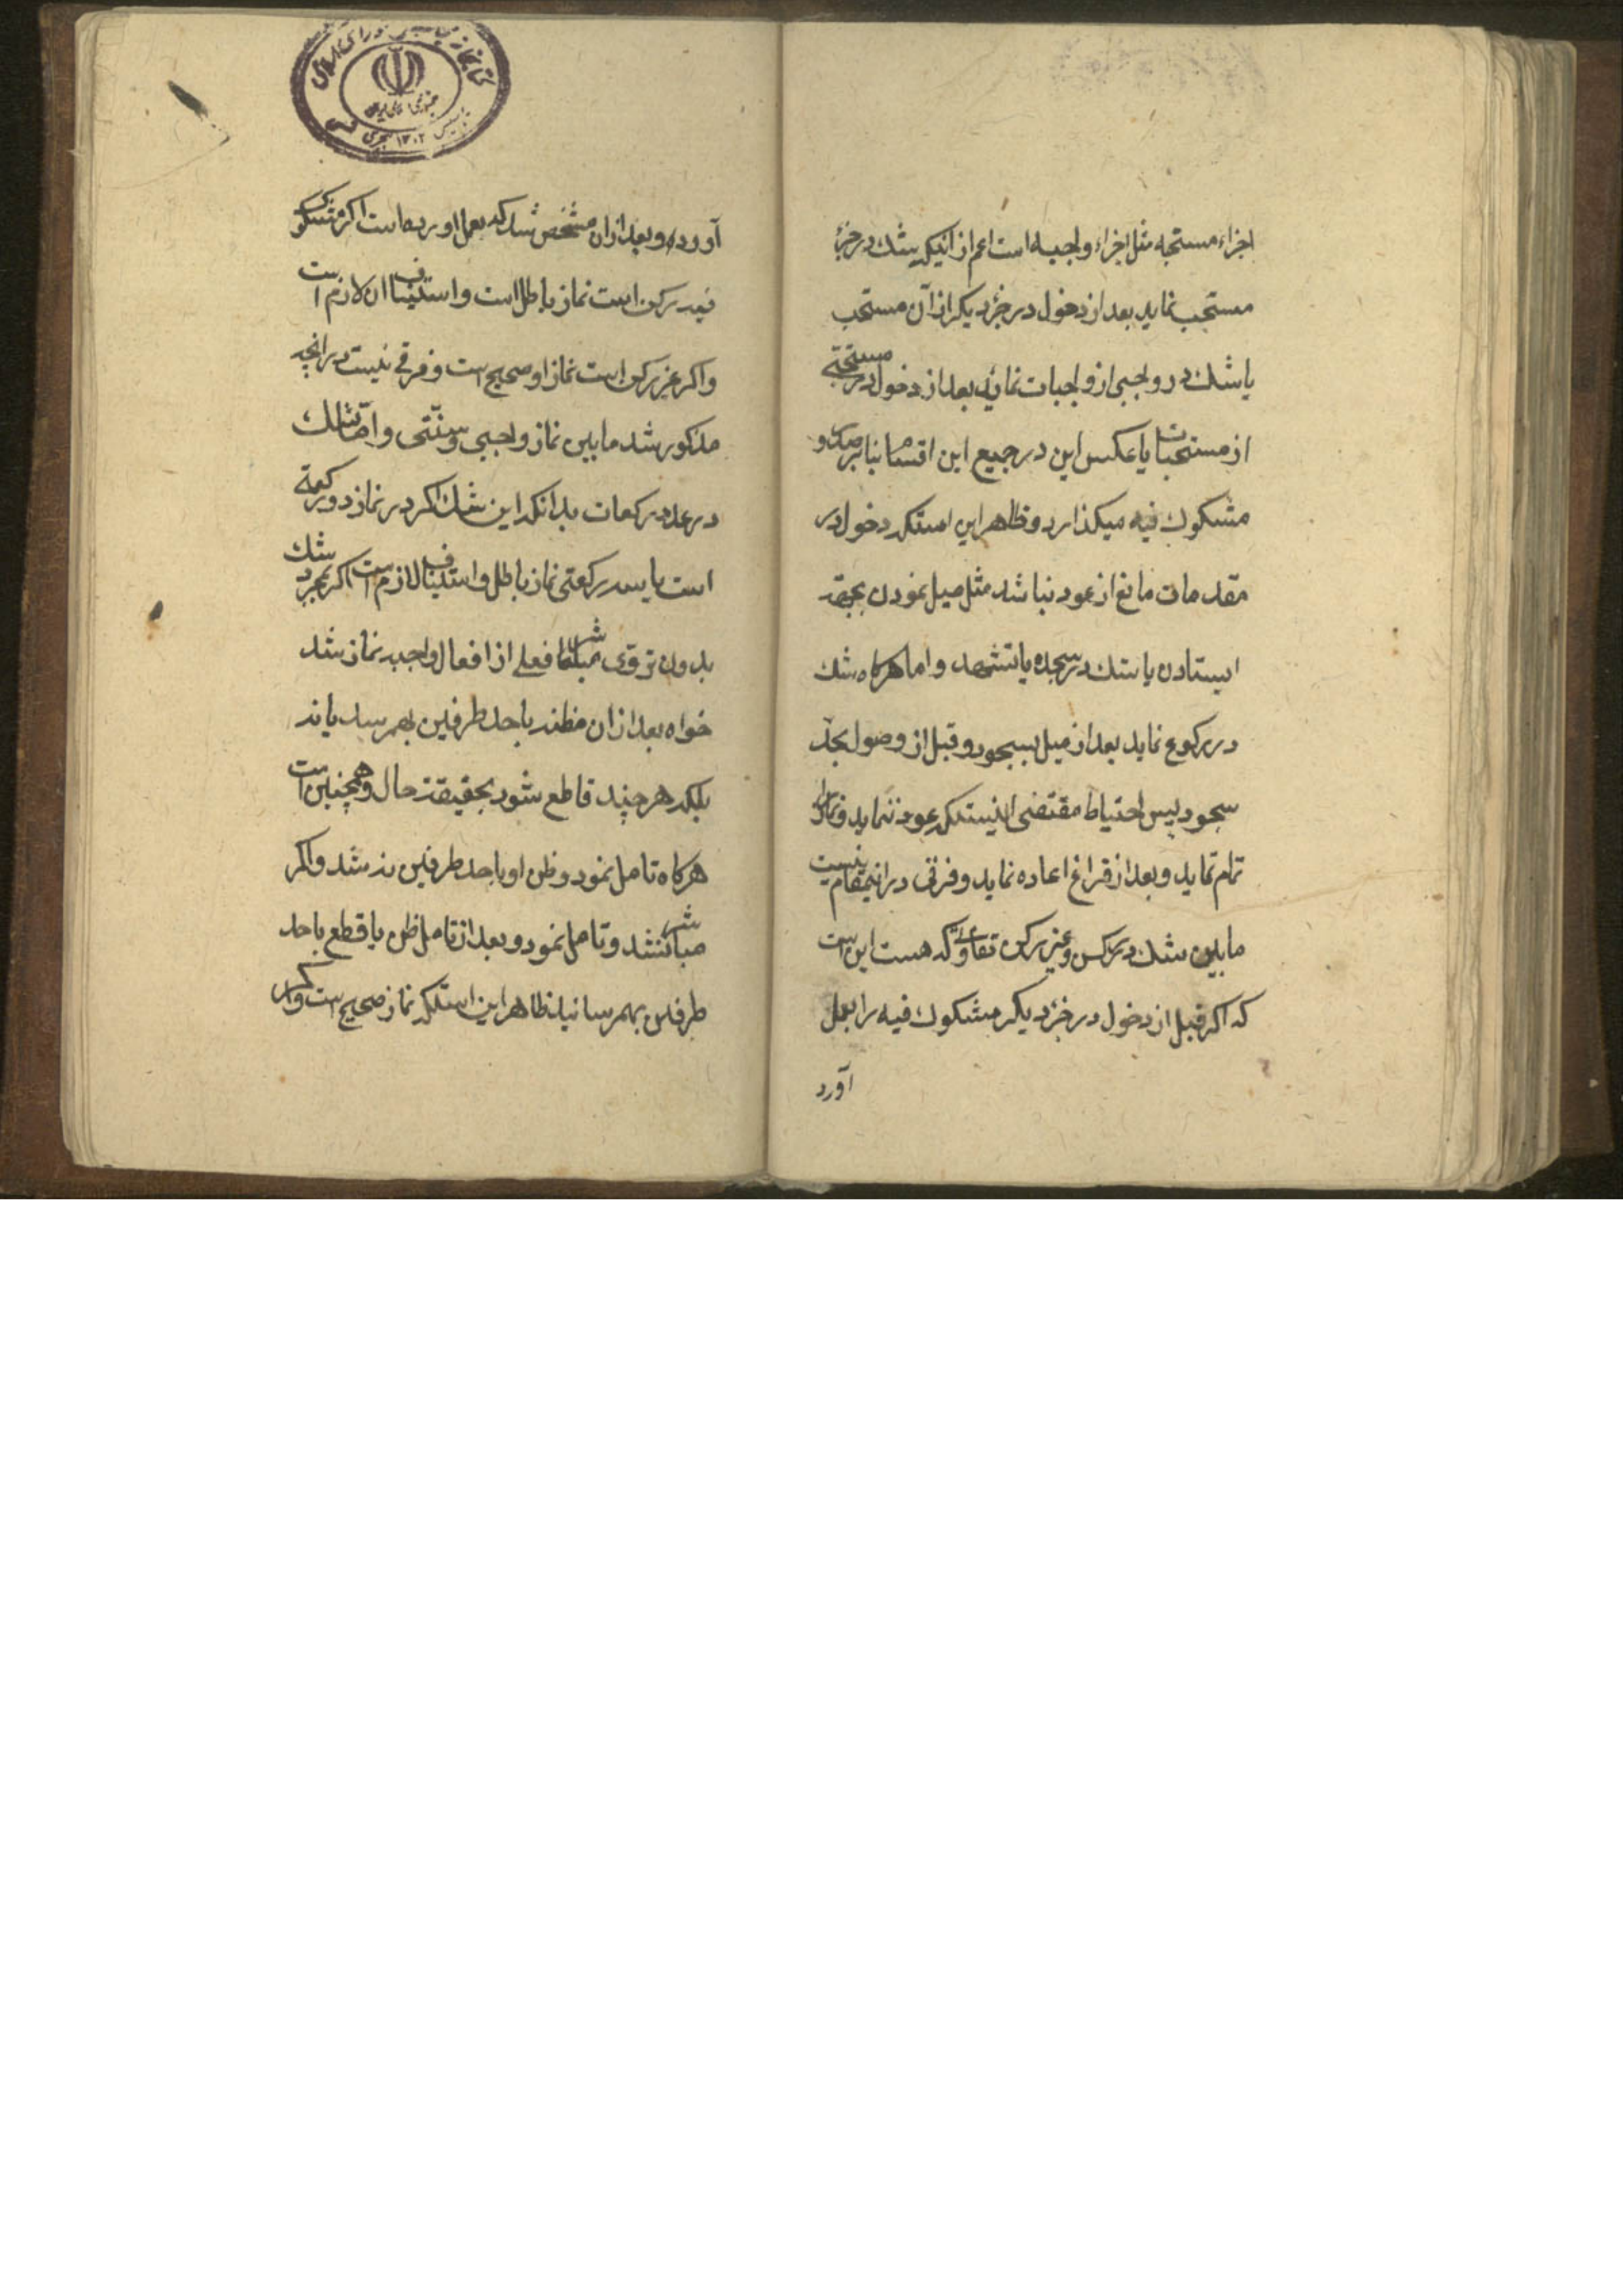 اجزاء مستحبه مثل اجزاء واجبه است اعم از اینکه شک در جزء
مستحب نماید بعد از دخول در جزء دیکر از آن مستحب
یا شک در واجبی از واجبات نماید بعد از دخول در مستحبی
از مستحبات یا عکس این در جمیع این اقسام بنا بر صحت و
مشکوک فیه میکذارد و ظاهر این استکه دخول در
مقدمات مانع از عود نباشد مثل میل نمودن بجهة
ایستادن یا شک در سجده یا تشهد و اما هرکاه شک
در رکوع نماید بعد از میل بسجود و قبل از وصول بحد
سجود پس احتیاط مقتضی اینستکه عود ننماید و نماز را
تمام نماید و بعد از فراغ اعاده نماید و فرقی در اینمقام نیست
مابین شک در رکن و غیر رکن تفاوتی که هست این است
که اکر قبل از دخول در جزء دیکر مشکوک فیه را بعمل
آورد
آورد و بعد از ان مشخص شد که بعمل اورده است اکر مشکوک
فیه رکن است نماز باطل است و استیناف ان لازم است
و اکر غیر رکن است نماز او صحیح است و فرقی نیست در انچه
مذکور شد مابین نماز واجبی و سنتی و اما شک
در عدد رکعات بدانکه این شک اکر در نماز دو رکعتی
است یا سه رکعتی نماز باطل و استیناف لازم است اکر بمجرد شک
بدون تروی مباشر فعلی از افعال واجبه نماز شد
خواه بعد از ان مظنه باحد طرفین بهمرسد یا نه
بلکه هرچند قاطع شود بحقیقت حال و همچنین است
هرکاه تامل نمود و ظن او باحد طرفین نرسید و اکر
مباشر نشد و تامل نمود و بعد از تامل ظن یا قطع باحد
طرفین بهمرسانید ظاهر این استکه نماز صحیح است و اکر